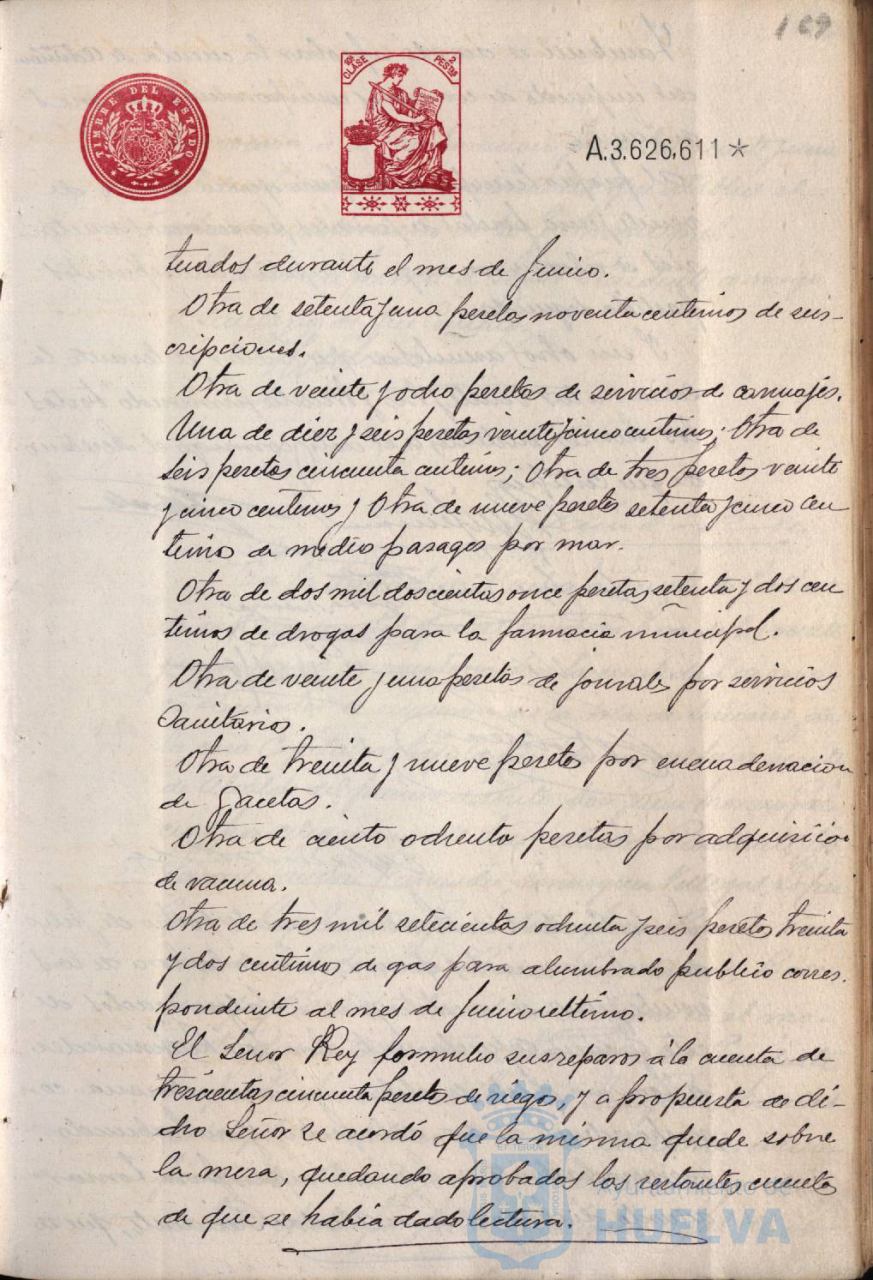 169
TIMBRE DEL ESTADO
10ª CLASE 2 PESTAS
A.3.626,611*
tuados durante el mes de Junio.
Otra de setenta y una pesetas noventa centimos de sus-
cripciones.
Otra de veinte y ocho pesetas de servicios de carruajes.
Una de diez y seis pesetas veinte y cinco centimos; Otra de
seis pesetas cincuenta centimos; Otra de tres pesetas veinte
y cinco centimos y Otra de nueve pesetas setenta y cinco cen
timos de medios pasages por mar.
Otra de dos mil doscientas once pesetas setenta y dos cen
timos de drogas para la farmacia municipal.
Otra de veinte y una pesetas de jornales por servicios
Sanitarios.
Otra de treinta y nueve pesetas por encuadernacion
de Gacetas.
Otra de ciento ochenta pesetas por adquisicion
de vacuna.
Otra de tres mil setecientas ochenta y seis pesetas treinta
y dos centimos de gas para alumbrado publico corres-
pondiente al mes de Junio ultimo.
El Señor Rey formulo sus reparos á la cuenta de
trescientas cincuenta pesetas de riegos, y a propuesta de di-
cho Señor se acordó que la misma quede sobre
la mesa, quedando aprobados las restantes cuentas
de que se habia dado lectura.
Ayuntamiento de
HUELVA